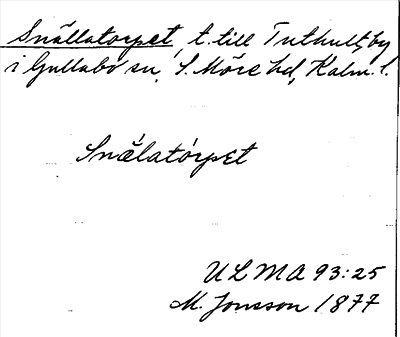 Snällatorpet, t. till Tuthult, by
i Gullabo sn, S. Möre hd, Kalm. l.
Snä́latórpet
ULMA 93:25
M. Jonsson 1877